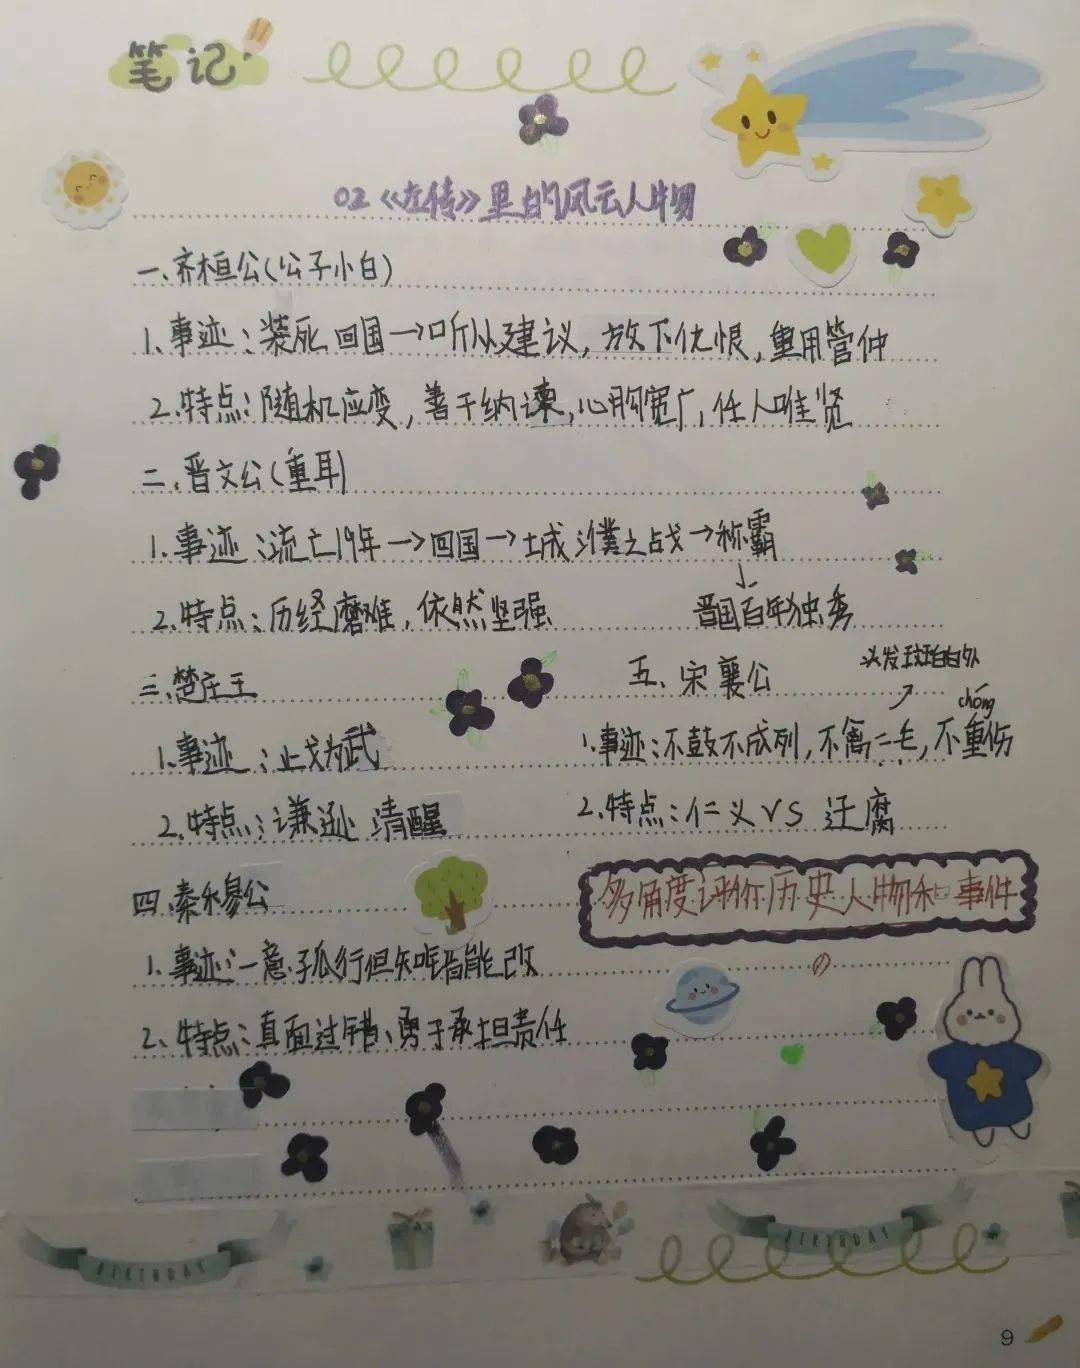 笔记
02《左传》里的风云人物
一、齐桓公(公子小白)
1、事迹：装死回国→听从建议，放下仇恨，重用管仲
2、特点：随机应变，善于纳谏，心胸宽广，任人唯贤
二、晋文公(重耳)
1、事迹：流亡19年→回国→城濮之战→称霸
↓
2、特点：历经磨难，依然坚强
晋国百年独秀
三、楚庄王
1、事迹：止戈为武
2、特点：谦逊 清醒
四、秦穆公
1、事迹：一意孤行但知错能改
2、特点：直面过错、勇于承担责任
五、宋襄公
头发斑白
↗
chóng
1、事迹：不鼓不成列，不禽二毛，不重伤
2、特点：仁义 VS 迂腐
多角度评价历史人物和事件
BIRTHDAY
BIRTHDAY
9